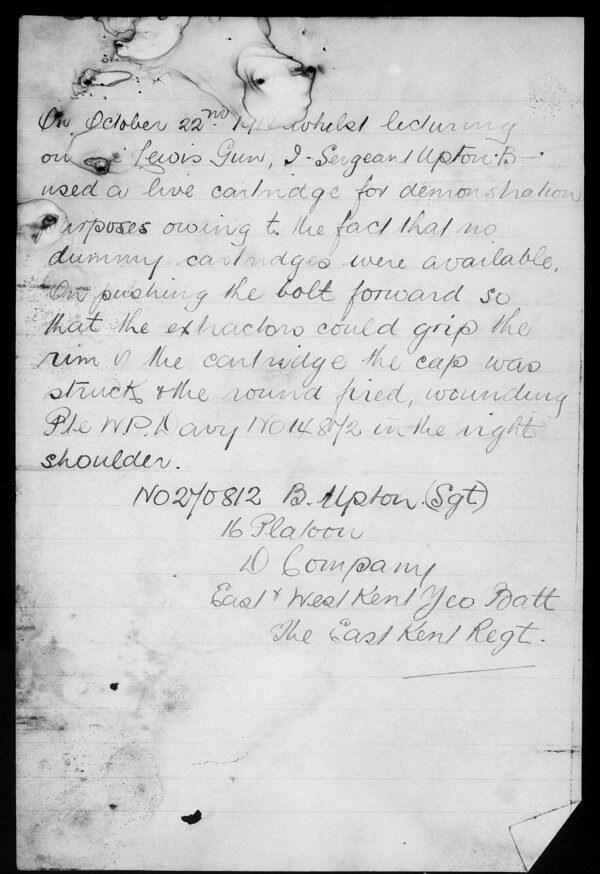 On October 22nd whilst lecturing
on Lewis Gun, I - Sergeant Upton. B -
used a live cartridge for demonstration
purposes owing t. the fact that no
dummy cartridges were available.
On pushing the bolt forward so
that the extractors could grip the
rim of the cartridge the cap was
struck & the round fired, wounding
Pte W.P. Davy No 14872 in the right
shoulder.
No 270812 B. Upton. (Sgt)
16 Platoon
D Company
East & West Kent Yeo Batt
The East Kent Regt.